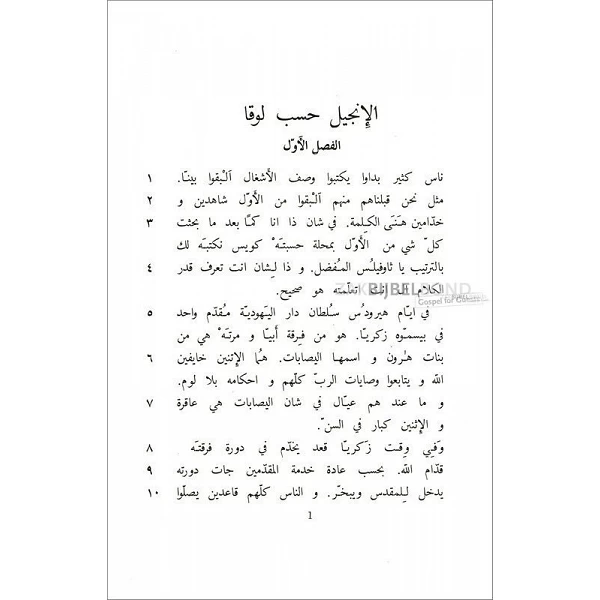 الإنجيل حسب لوقا
الفصل الأوّل
١ ناس كثير بداوا يكتبوا وصف الأشغال ٱلبقوا بيننا.
٢ مثل نحن قبلناهم منهم ٱلبقوا من الأوّل شاهدين و
٣ خدّامين هَنَى الكِلمة. في شان ذا انا كمًا بعد ما بحثت
كلّ شي من الأوّل بمحلة حسبتهْ كويس نكتبه لك
٤ بالترتيب يا ثاوفيلُس المُفضل. و ذا لِشان انت تعرف قدر
الكلام انك اتعلّمته هو صحيح.
KBIJBEL
Gospel for
٥ في ايّام هيرودُس سُلطان دار اليَهوديّة مُقدّم واحد
في بيسموّه زكريّا. هو من فرقة أبيّا و مرتهْ هي من
٦ بنات هٰرون و اسمها اليصابات. هُما الإثنين خايفين
الله و يتابعوا وصايات الربّ كلّهم و احكامه بلا لوم.
٧ و ما عند هم عيال في شان اليصابات هي عاقرة
و الإثنين كبار في السنّ.
٨ وَفي وقت زكريّا قعد يخدّم في دورة فرقتهْ
٩ قدّام الله. بحسب عادة خدمة المقدّمين جات دورته
١٠ يدخل لِلمقدس ويبخّر. و الناس كلّهم قاعدين يصلّوا
1